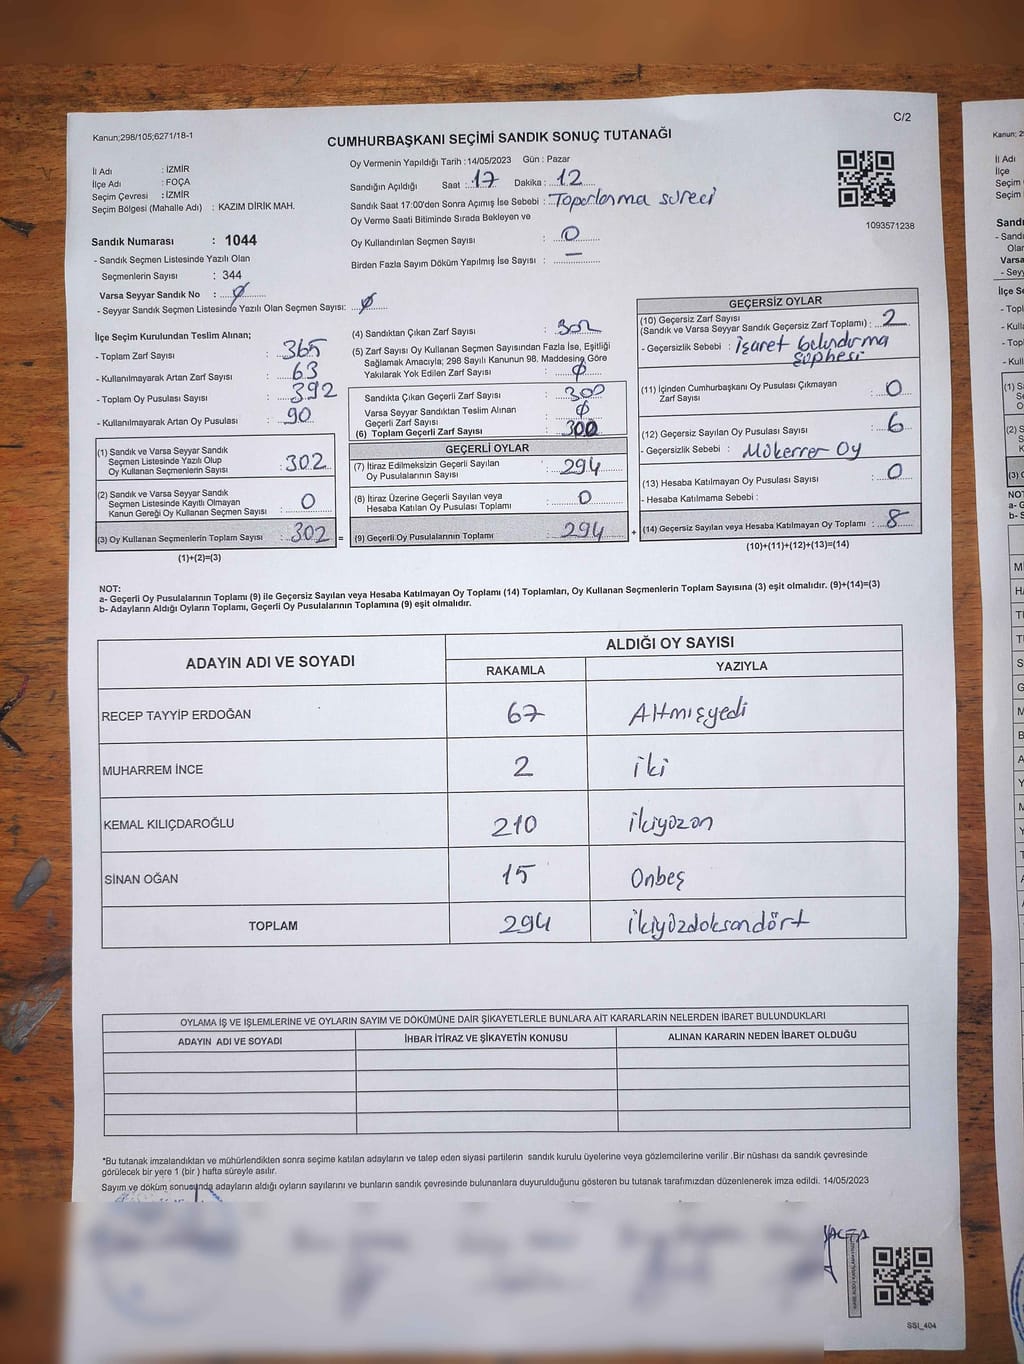 Kanun;298/105;6271/18-1
C/2
CUMHURBAŞKANI SEÇİMİ SANDIK SONUÇ TUTANAĞI
İl Adı : İZMİR
İlçe Adı : FOÇA
Seçim Çevresi : İZMİR
Seçim Bölgesi (Mahalle Adı) : KAZIM DİRİK MAH.
Oy Vermenin Yapıldığı Tarih : 14/05/2023 Gün : Pazar
Sandığın Açıldığı Saat : 17 Dakika : 12
Sandık Saat 17:00'den Sonra Açımış İse Sebebi : Toparlarma süreci
Oy Verme Saati Bitiminde Sırada Bekleyen ve
Oy Kullandırılan Seçmen Sayısı : 0
Birden Fazla Sayım Döküm Yapılmış İse Sayısı : —
1093571238
Sandık Numarası : 1044
- Sandık Seçmen Listesinde Yazılı Olan
Seçmenlerin Sayısı : 344
Varsa Seyyar Sandık No : Ø
- Seyyar Sandık Seçmen Listesinde Yazılı Olan Seçmen Sayısı: Ø
İlçe Seçim Kurulundan Teslim Alınan;
- Toplam Zarf Sayısı : 365
- Kullanılmayarak Artan Zarf Sayısı : 63
- Toplam Oy Pusulası Sayısı : 392
- Kullanılmayarak Artan Oy Pusulası : 90
(1) Sandık ve Varsa Seyyar Sandık
Seçmen Listesinde Yazılı Olup
Oy Kullanan Seçmenlerin Sayısı : 302
(2) Sandık ve Varsa Seyyar Sandık
Seçmen Listesinde Kayıtlı Olmayan
Kanun Gereği Oy Kullanan Seçmen Sayısı : 0
(3) Oy Kullanan Seçmenlerin Toplam Sayısı : 302 =
(1)+(2)=(3)
(4) Sandıktan Çıkan Zarf Sayısı : 302
(5) Zarf Sayısı Oy Kullanan Seçmen Sayısından Fazla İse, Eşitliği
Sağlamak Amacıyla; 298 Sayılı Kanunun 98. Maddesine Göre
Yakılarak Yok Edilen Zarf Sayısı : Ø
Sandıkta Çıkan Geçerli Zarf Sayısı : 300
Varsa Seyyar Sandıktan Teslim Alınan
Geçerli Zarf Sayısı : Ø
(6) Toplam Geçerli Zarf Sayısı : 300
GEÇERLİ OYLAR
(7) İtiraz Edilmeksizin Geçerli Sayılan
Oy Pusulasının Sayısı : 294
(8) İtiraz Üzerine Geçerli Sayılan veya
Hesaba Katılan Oy Pusulası Toplamı : 0
(9) Geçerli Oy Pusulalarının Toplamı : 294 +
GEÇERSİZ OYLAR
(10) Geçersiz Zarf Sayısı
(Sandık ve Varsa Seyyar Sandık Geçersiz Zarf Toplamı) : 2
- Geçersizlik Sebebi : işaret bulundurma
şüphesi
(11) İçinden Cumhurbaşkanı Oy Pusulası Çıkmayan
Zarf Sayısı : 0
(12) Geçersiz Sayılan Oy Pusulası Sayısı : 6
- Geçersizlik Sebebi : Mükerrer Oy
(13) Hesaba Katılmayan Oy Pusulası Sayısı : 0
- Hesaba Katılmama Sebebi :
(14) Geçersiz Sayılan veya Hesaba Katılmayan Oy Toplamı : 8
(10)+(11)+(12)+(13)=(14)
NOT:
a- Geçerli Oy Pusulalarının Toplamı (9) ile Geçersiz Sayılan veya Hesaba Katılmayan Oy Toplamı (14) Toplamları, Oy Kullanan Seçmenlerin Toplam Sayısına (3) eşit olmalıdır. (9)+(14)=(3)
b- Adayların Aldığı Oyların Toplamı, Geçerli Oy Pusulalarının Toplamına (9) eşit olmalıdır.
ADAYIN ADI VE SOYADI
ALDIĞI OY SAYISI
RAKAMLA YAZIYLA
RECEP TAYYİP ERDOĞAN 67 Altmışyedi
MUHARREM İNCE 2 iki
KEMAL KILIÇDAROĞLU 210 ikiyüzon
SİNAN OĞAN 15 Onbeş
TOPLAM 294 ikiyüzdoksandört
OYLAMA İŞ VE İŞLEMLERİNE VE OYLARIN SAYIM VE DÖKÜMÜNE DAİR ŞİKAYETLERLE BUNLARA AİT KARARLARIN NELERDEN İBARET BULUNDUKLARI
ADAYIN ADI VE SOYADI İHBAR İTİRAZ VE ŞİKAYETİN KONUSU ALINAN KARARIN NEDEN İBARET OLDUĞU
*Bu tutanak imzalandıktan ve mühürlendikten sonra seçime katılan adayların ve talep eden siyasi partilerin sandık kurulu üyelerine veya gözlemcilerine verilir .Bir nüshası da sandık çevresinde
görülecek bir yere 1 (bir ) hafta süreyle asılır.
Sayım ve döküm sonusunda adayların aldığı oyların sayılarını ve bunların sandık çevresinde bulunanlara duyurulduğunu gösteren bu tutanak tarafımızdan düzenlenerek imza edildi. 14/05/2023
SSI_404
Kanun; 2
İl Adı
İlçe
Seçim
Seçim